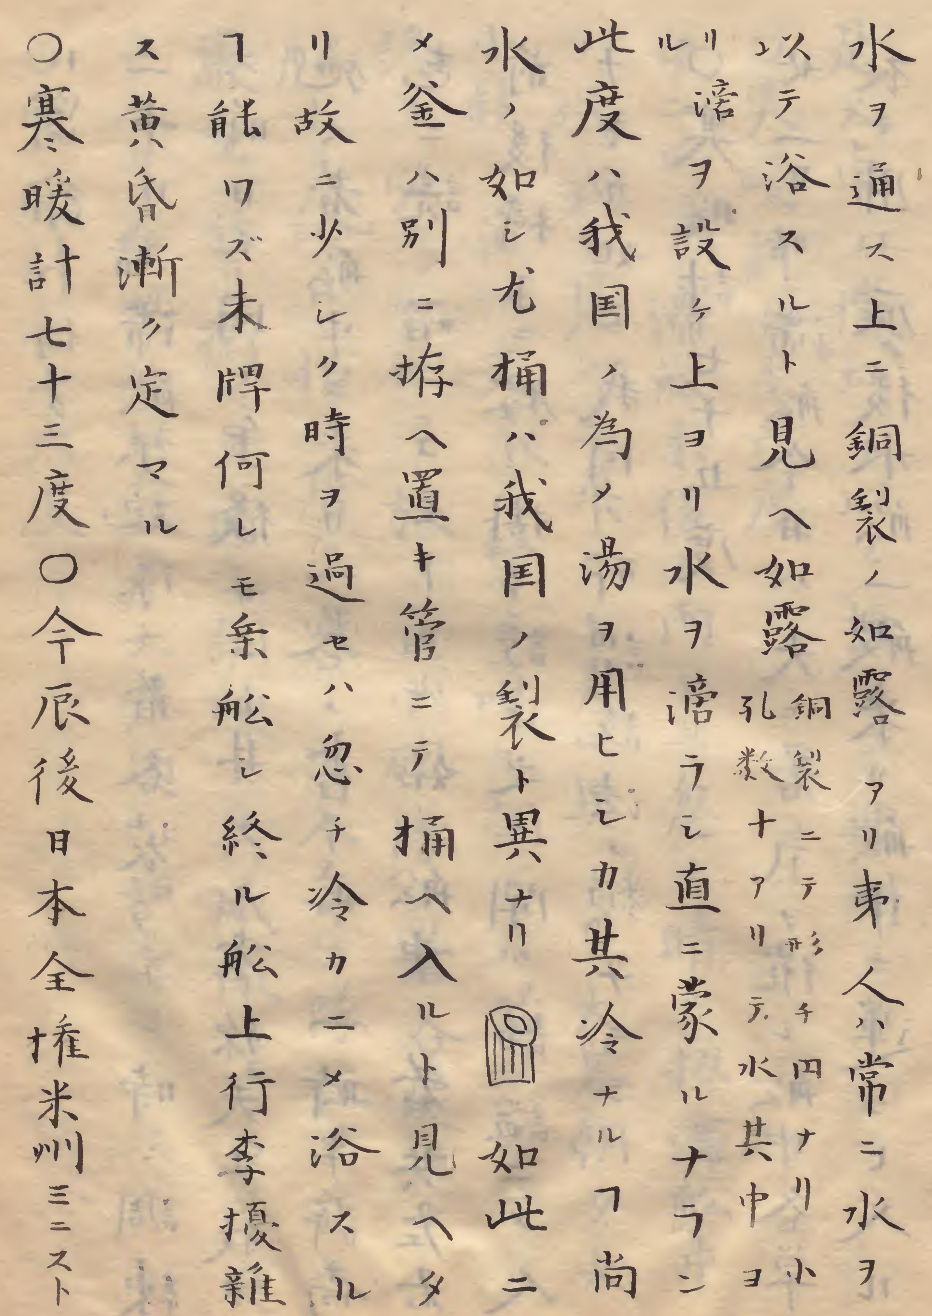 水ヲ通ス上ニ銅製ノ如露アリ夷人ハ常ニ水ヲ
以テ浴スルト見ヘ如露銅製ニテ形チ円ナリ小
孔数十アリテ水其中ヨ
リ滂
ル
ヲ設ケ上ヨリ水ヲ滂ラシ直ニ蒙ルナラン
此度ハ我囯ノ為メ湯ヲ用ヒシカ其冷ナルヿ尚
水ノ如シ尤桶ハ我囯ノ製ト異ナリ如此ニ
メ釜ハ別ニ拵ヘ置キ管ニテ桶ヘ入ルト見ヘタ
リ故ニ少シク時ヲ過セハ忽チ冷カニメ浴スル
ヿ能ワズ未牌何レモ乗舩シ終ル舩上行李擾雑
ス黄昏漸ク定マル
〇寒暖計七十三度〇今辰後日本全権米州ミニスト